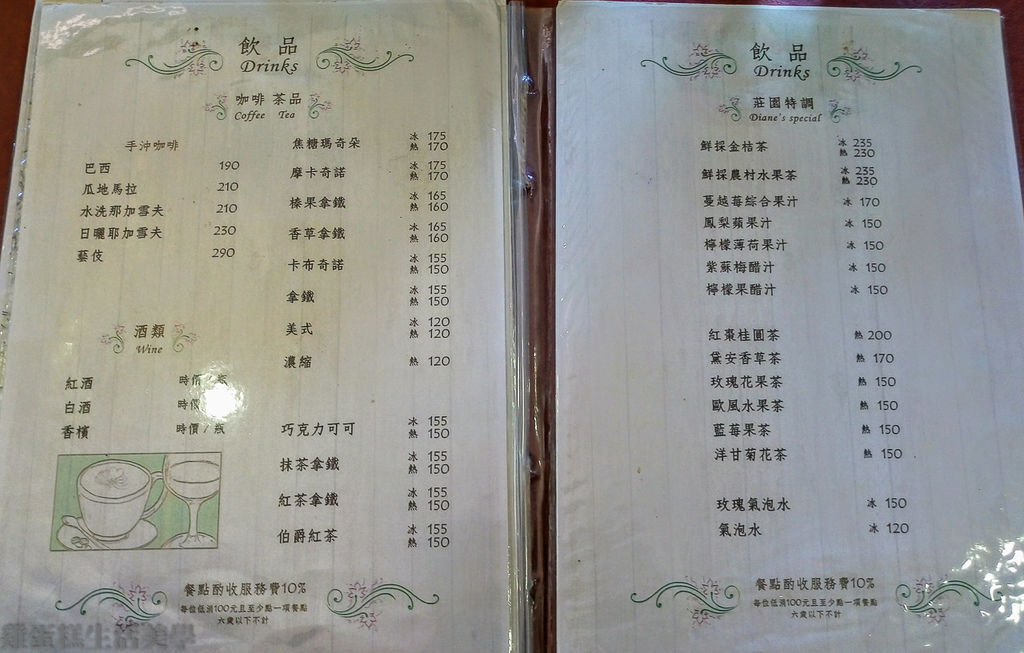 飲品
Drinks
咖啡 茶品
Coffee Tea
手沖咖啡
巴西 190
瓜地馬拉 210
水洗耶加雪夫 210
日曬耶加雪夫 230
藝伎 290
酒類
Wine
紅酒 時價 / 瓶
白酒 時價
香檳 時價 / 瓶
焦糖瑪奇朵 冰 175
熱 170
摩卡奇諾 冰 175
熱 170
榛果拿鐵 冰 165
熱 160
香草拿鐵 冰 165
熱 160
卡布奇諾 冰 155
熱 150
拿鐵 冰 155
熱 150
美式 冰 120
熱 120
濃縮 熱 120
巧克力可可 冰 155
熱 150
抹茶拿鐵 冰 155
熱 150
紅茶拿鐵 冰 155
熱 150
伯爵紅茶 冰 155
熱 150
餐點酌收服務費10%
每位低消100元且至少點一項餐點
六歲以下不計
飲品
Drinks
莊園特調
Diane's special
鮮採金桔茶 冰 235
熱 230
鮮採農村水果茶 冰 235
熱 230
蔓越莓綜合果汁 冰 170
鳳梨蘋果汁 冰 150
檸檬薄荷果汁 冰 150
紫蘇梅醋汁 冰 150
檸檬果醋汁 冰 150
紅棗桂圓茶 熱 200
黛安香草茶 熱 170
玫瑰花果茶 熱 150
歐風水果茶 熱 150
藍莓果茶 熱 150
洋甘菊花茶 熱 150
玫瑰氣泡水 冰 150
氣泡水 冰 120
餐點酌收服務費10%
每位低消100元且至少點一項餐點
六歲以下不計
雞蛋糕生活美學